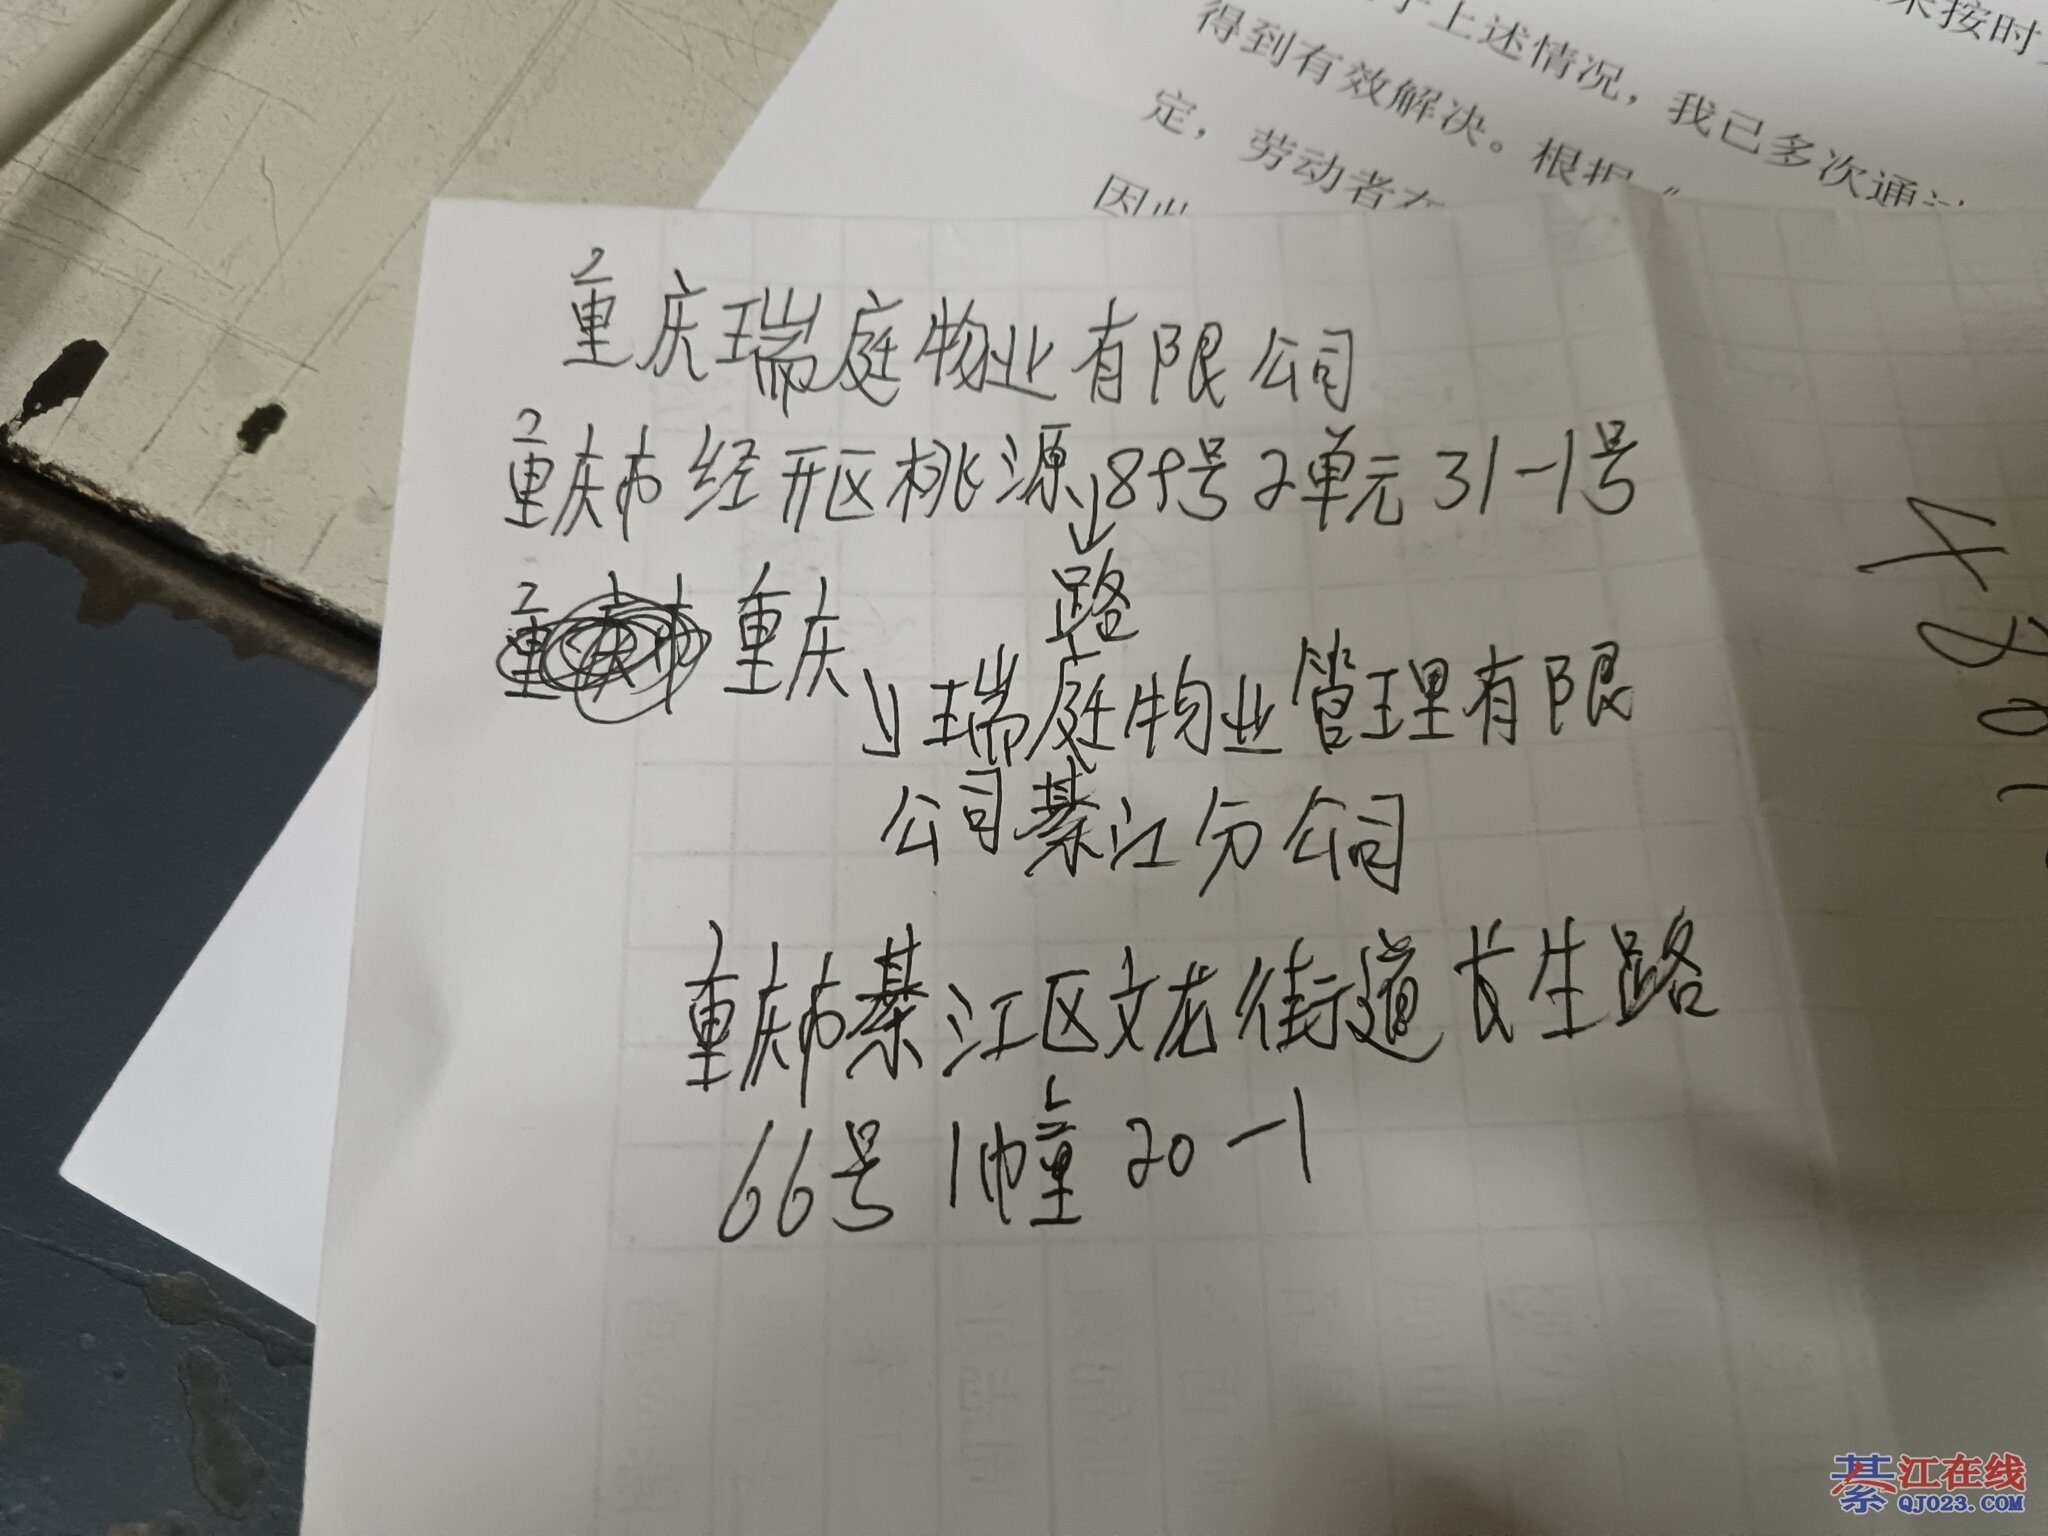 上述情况，我已多次通
得到有效解决。根据“
定，劳动者
重庆瑞庭物业有限公司
重庆市经开区桃源89号2单元31-1号
路
重庆市 重庆
瑞庭物业管理有限
公司綦江分公司
重庆市綦江区文龙街道长生路
66号1幢20-1
綦江在线
QJ023.COM